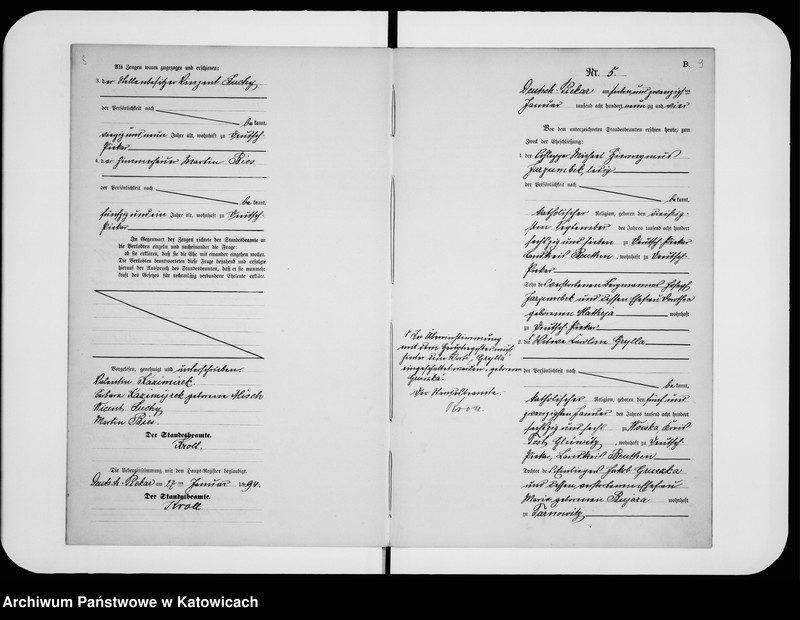 8
Als Zeugen waren zugezogen und erschienen:
3. der Stellenbesitzer Vinzent Suchy
der Persönlichkeit nach
be kannt,
vierzig und neun Jahre alt, wohnhaft zu Deutsch-
Piekar
4. der Martin Bies
der Persönlichkeit nach
be kannt,
fünfzig und ein Jahre alt, wohnhaft zu Deutsch-
Piekar
In Gegenwart der Zeugen richtete der Standesbeamte an
die Verlobten einzeln und nacheinander die Frage:
ob sie erklären, daß sie die Ehe mit einander eingehen wollen.
Die Verlobten beantworteten diese Frage bejahend und erfolgte
hierauf der Ausspruch des Standesbeamten, daß er sie nunmehr
kraft des Gesetzes für rechtmäßig verbundene Eheleute erkläre.
Vorgelesen, genehmigt und unterschrieben.
Valentin Kazimirek
Barbara Kazimirek geborene Misch
Vicent Suchy
Martin Bies.
Der Standesbeamte.
Kroll.
Die Uebereinstimmung mit dem Haupt-Register beglaubigt.
Deutsch-Piekar am 27ten Januar 1894.
Der Standesbeamte.
Kroll
B.
9
Nr. 5.
Deutsch-Piekar am sieben und zwanzigsten
Januar tausend acht hundert neun zig und vier
Vor dem unterzeichneten Standesbeamten erschien heute, zum
Zweck der Eheschließung:
1. der Schlepper Michael Hieronymus
Jarzumbek, ledig
der Persönlichkeit nach
be kannt,
katholischer Religion, geboren den dreißig-
sten September des Jahres tausend acht hundert
sechszig und sieben zu Deutsch-Piekar
Landkreis Beuthen, wohnhaft zu Deutsch-
Piekar
Sohn des verstorbenen Bergmannes Joseph
Jarzumbek und dessen Ehefrau Dorothea
geborenen Matheja wohnhaft
zu Deutsch-Piekar
2. die Witwe Karoline Grylla
der Persönlichkeit nach
be kannt,
katholischer Religion, geboren den fünf und
zwanzigsten Januar des Jahres tausend acht hundert
sechszig und sechs zu Woiska Kreis
Tost-Gleiwitz, wohnhaft zu Deutsch-
Piekar, Landkreis Beuthen
Tochter des Einliegers Jakob Gruszka
und dessen verstorbenen Ehefrau
Marie geborenen Pujara wohnhaft
zu Tarnowitz
In Übereinstimmung
mit dem Hauptregister muß
hinter dem Wort „Grylla“
eingeschaltet werden „geborene
Gruszka“.
Der Standesbeamte.
Kroll.
Archiwum Państwowe w Katowicach